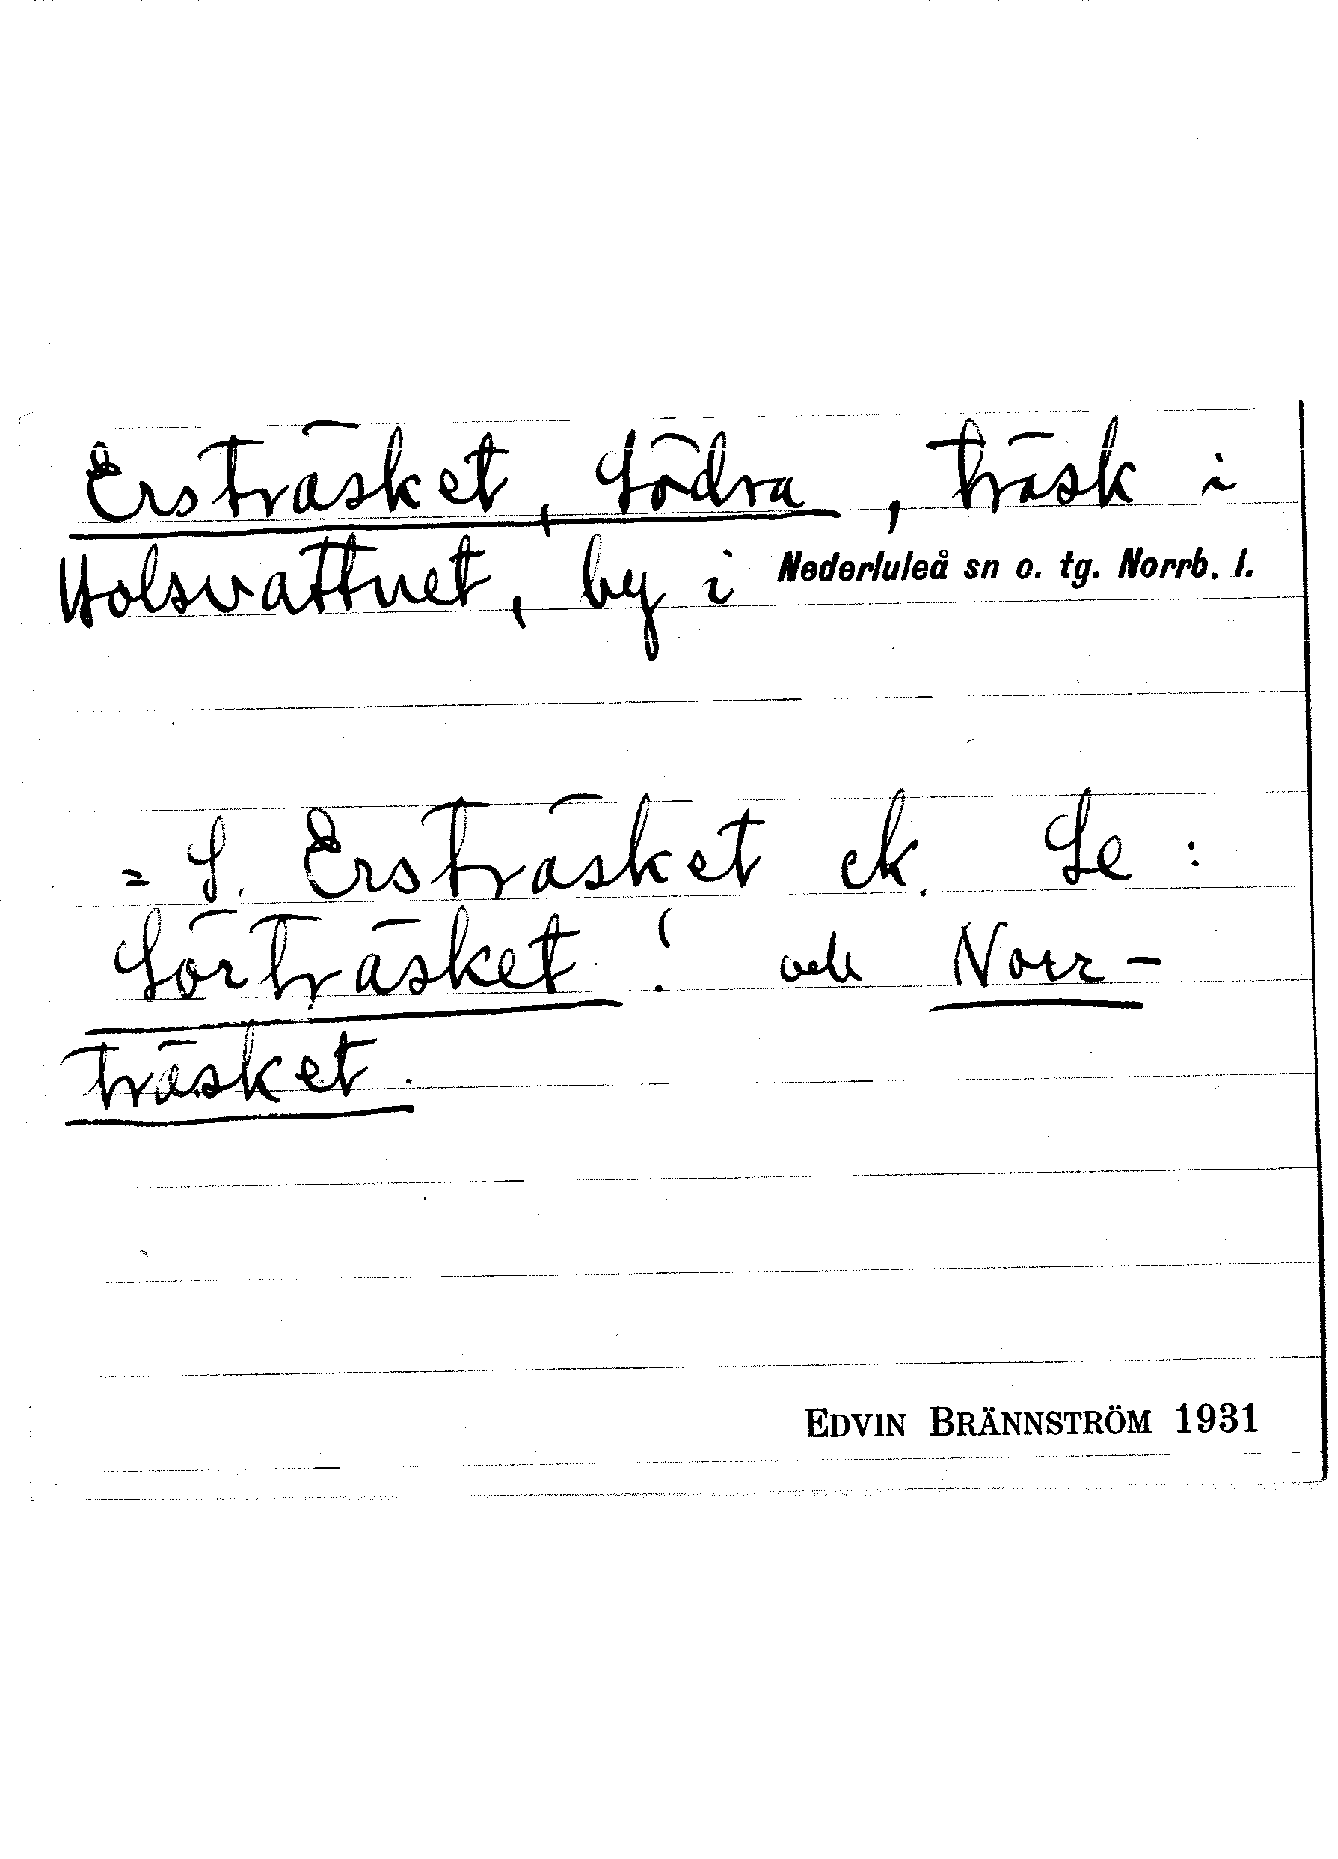 Ersträsket, Södra, träsk i
Holsvattnet, by i Nederluleå sn o. tg. Norrb. l.
= S. Ersträsket ek. Se:
Sörträsket! och Norr-
träsket.
EDVIN BRÄNNSTRÖM 1931